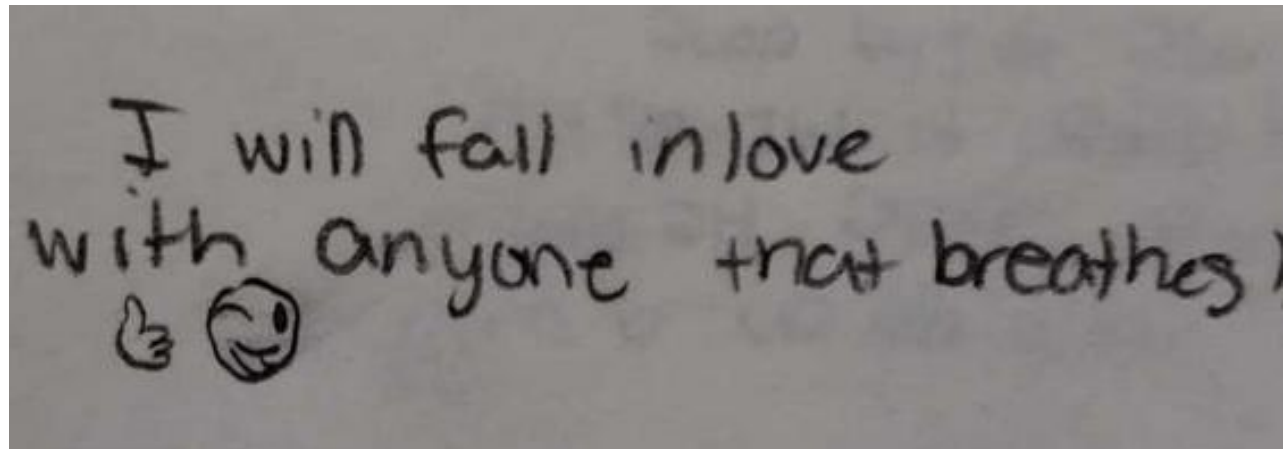 I will fall inlove
with anyone that breathes!